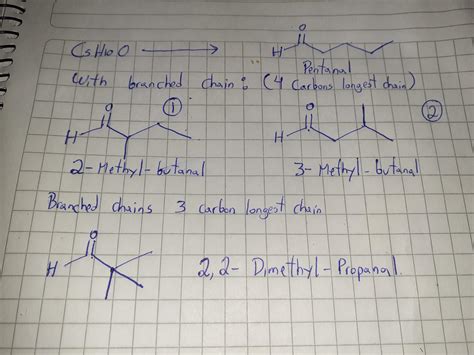 C5H10O → H O
Pentanal
With branched chain: (4 Carbons longest chain)
① ②
O O
H H
2-Methyl-butanal 3-Methyl-butanal
Branched chains 3 carbon longest chain
O
H 2,2-Dimethyl-Propanal